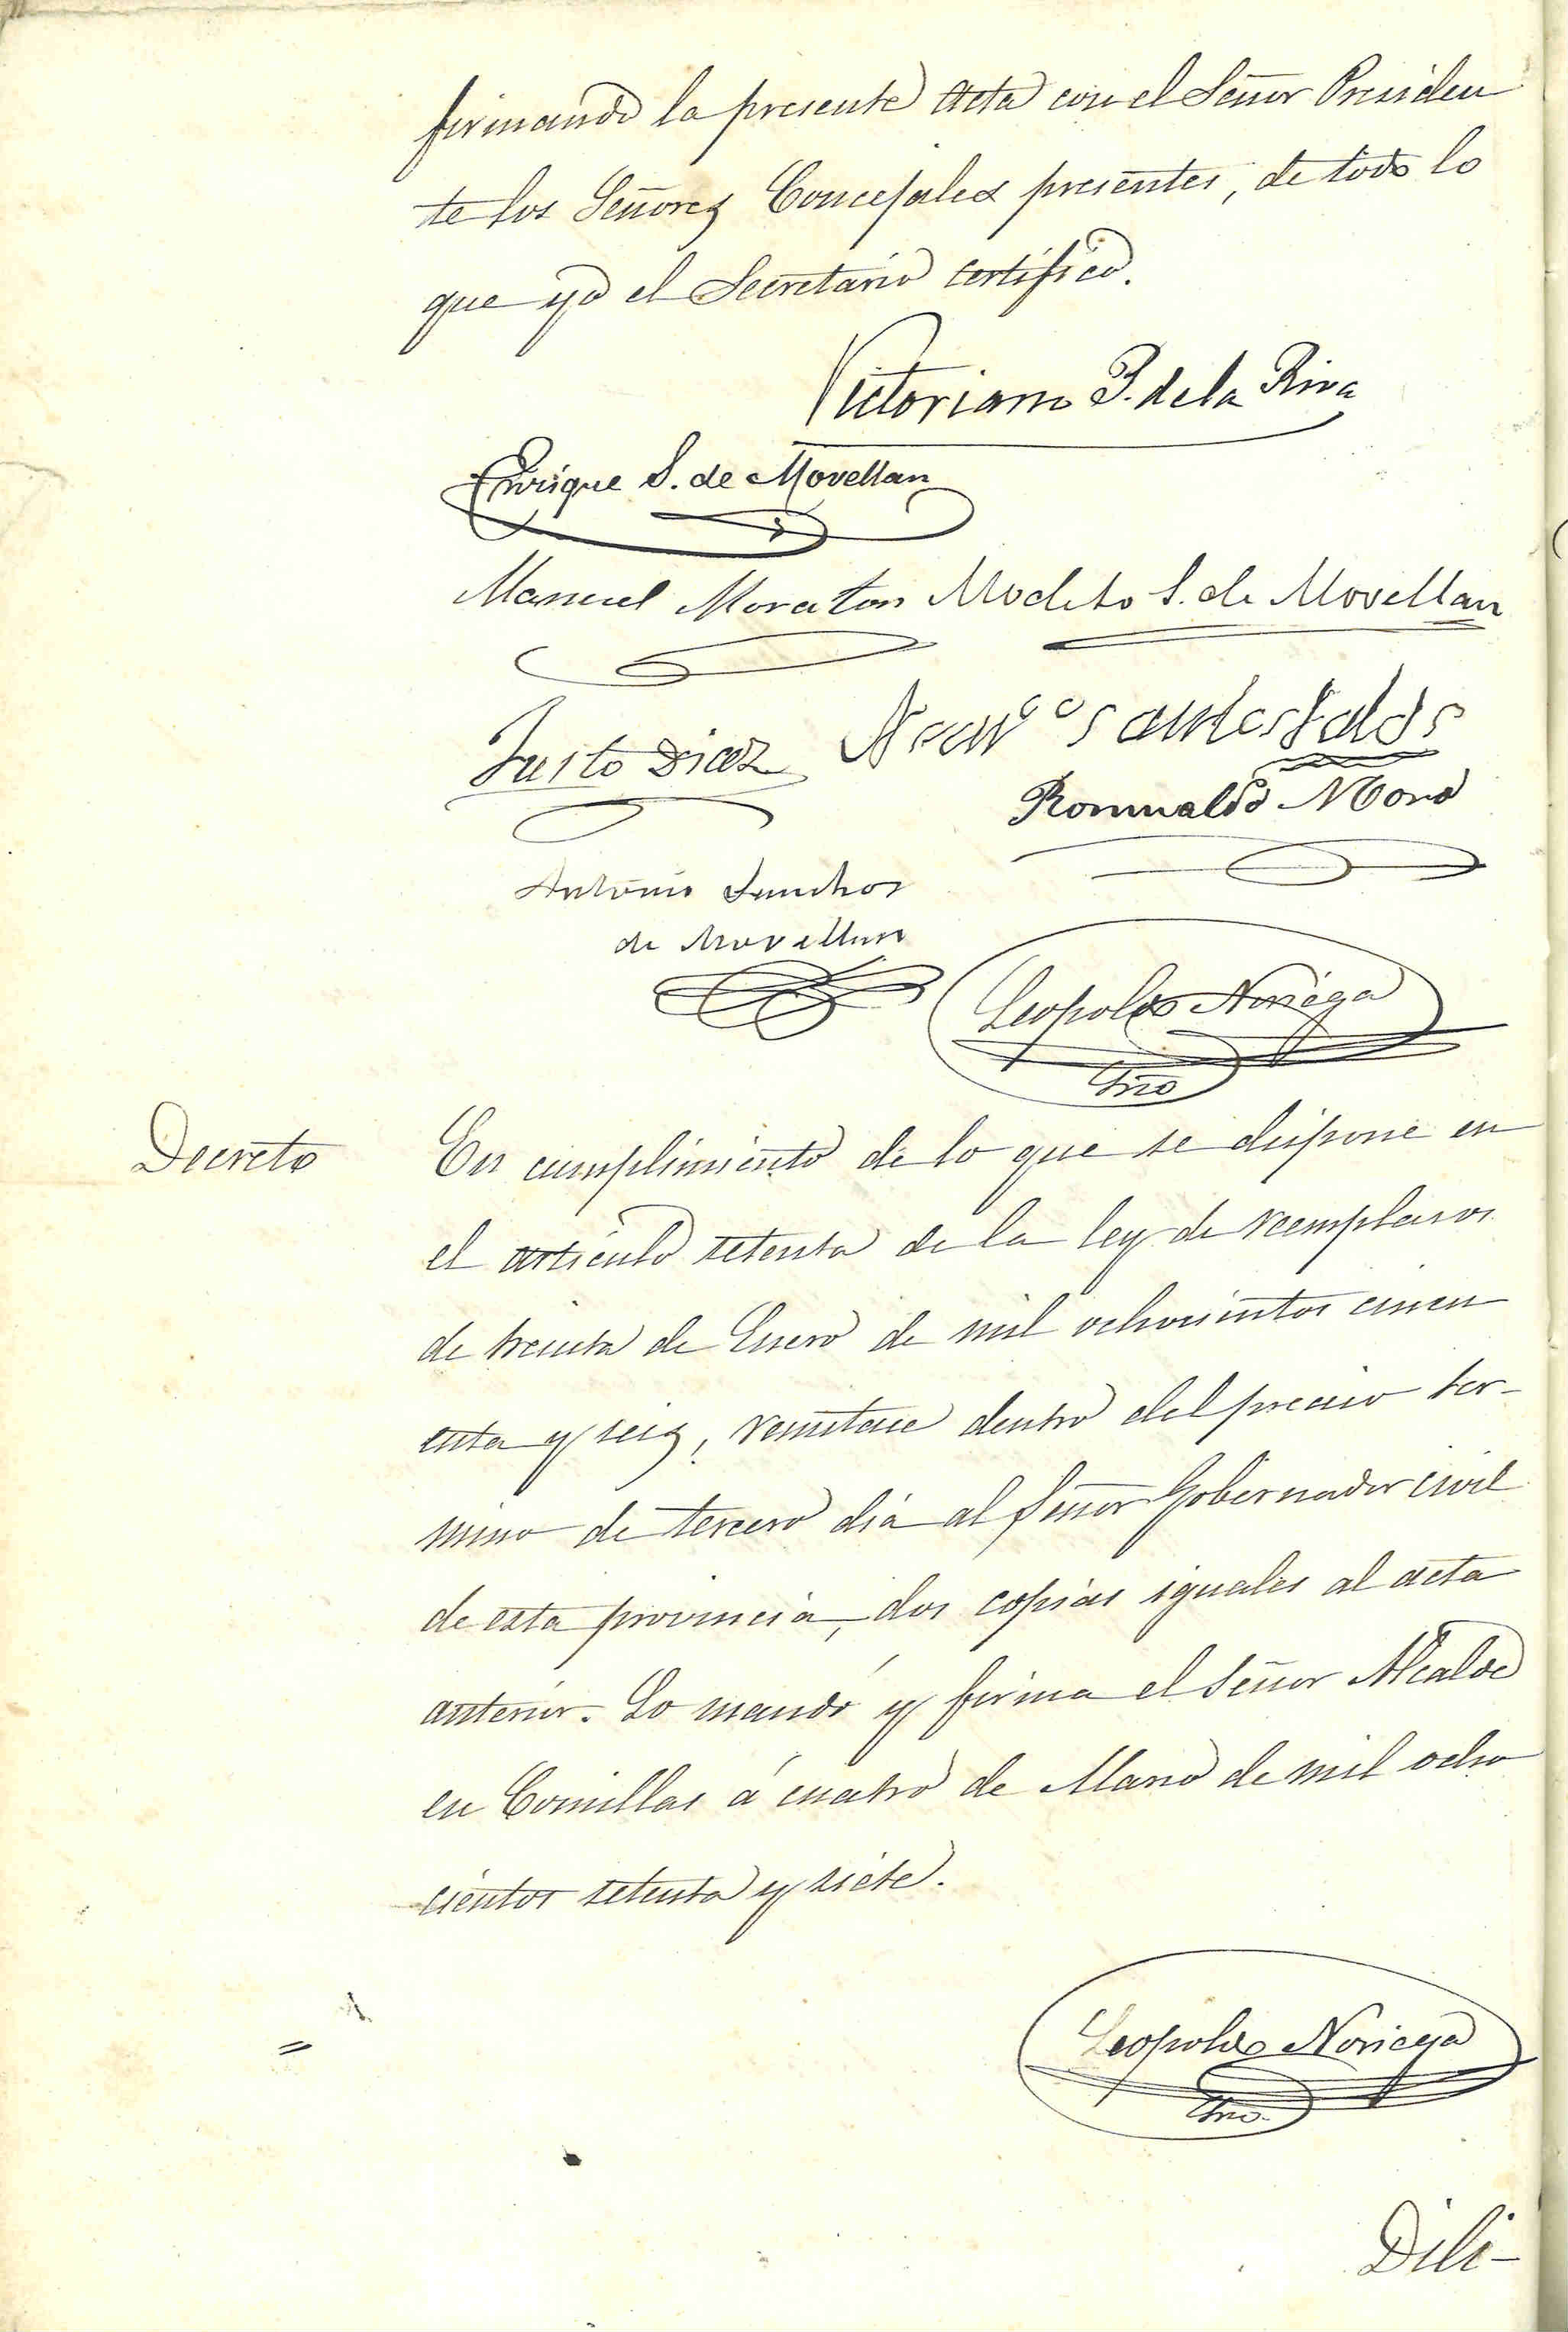 firmando la presente acta con el Señor Presiden
te los Señores Concejales presentes, de todo lo
que yo el Secretario certifico.
Victoriano P. de la Riva
Enrique S. de Movellan
Manuel Moraton Modesto S. de Movellan
Justo Diaz
Romualdo Moro
Antonio Sanchez
de Movellan
Leopoldo Noriega
Srio
Decreto
En cumplimiento de lo que se dispone en
el artículo setenta de la ley de reemplazos
de treinta de Enero de mil ochocientos cincu
enta y seis, remitase dentro del preciso ter-
mino de tercero dia al Señor Gobernador civil
de esta provincia, dos copias iguales al acta
anterior. Lo mandó y firma el Señor Alcalde
en Comillas á cuatro de Marzo de mil ocho
cientos setenta y siete.
Leopoldo Noriega
Srio.
Dili-